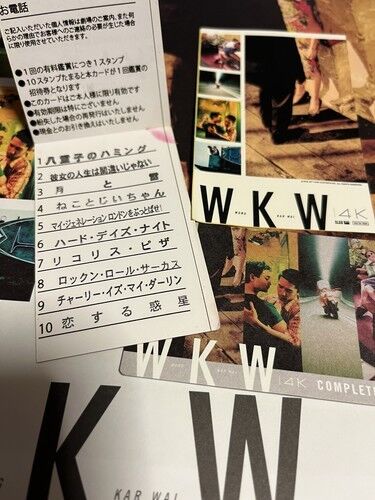 お電話
ご記入いただいた個人情報は劇場のご案内、また何
らかの理由でお客様へのご連絡の必要が生じた場合
に限り使用させていただきます。
●1回の有料鑑賞につき1スタンプ
●10スタンプたまると本カードが1回鑑賞の
招待券となります
●このカードはご本人様に限り有効です
●有効期限は特にございません
●紛失した場合の再発行はいたしません
●現金とのお引き換えはいたしません
1 八重子のハミング
2 彼女の人生は間違いじゃない
3 月と雷
4 ねことじいちゃん
5 マイ・ジェネレーション ロンドンをぶっとばせ!
6 ハード・デイズ・ナイト
7 リコリス・ピザ
8 ロックン・ロール・サーカス
9 チャーリー・イズ・マイ・ダーリン
10 恋する惑星
WKW 4K
WONG KAR WAI
WKW 4K COMPLETE
K W
KAR WAI